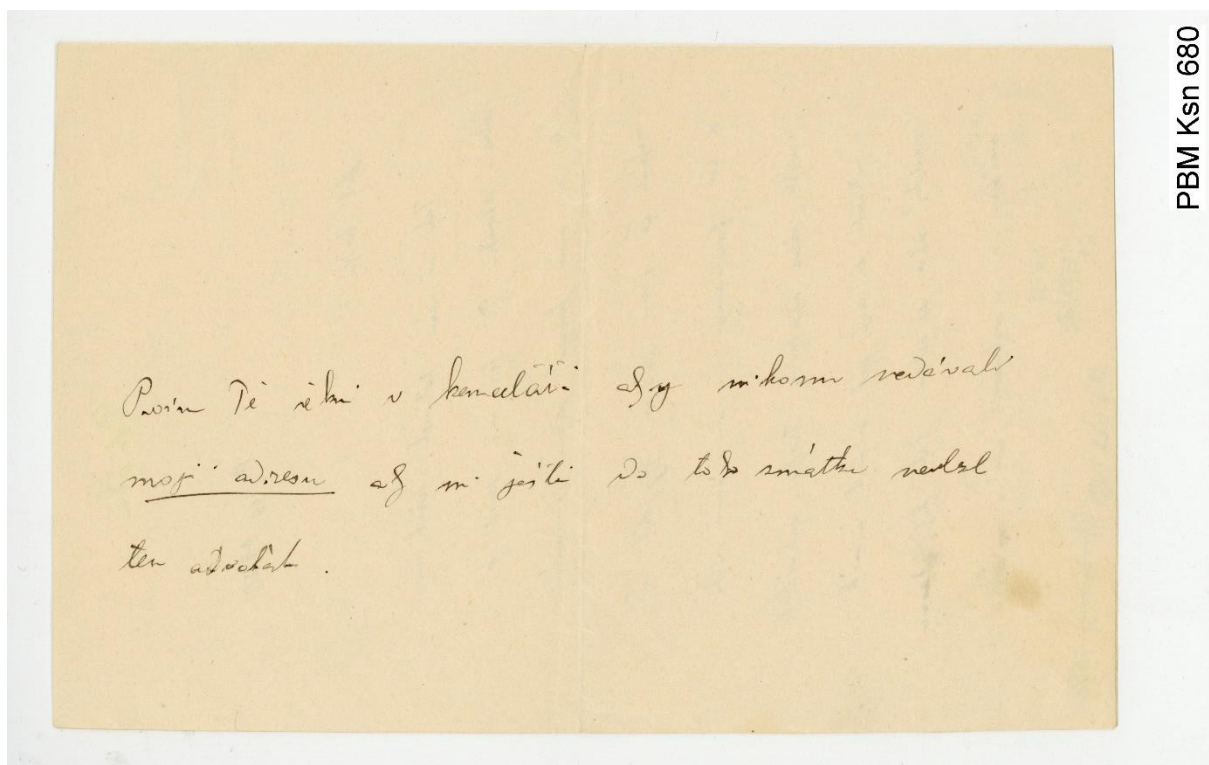 Prosím Tě řekni v kanceláři aby nikomu nedávali
moji adresu ať mi ještě do toho zmatku nevlezl
ten advokát.
PBM Ksn 680